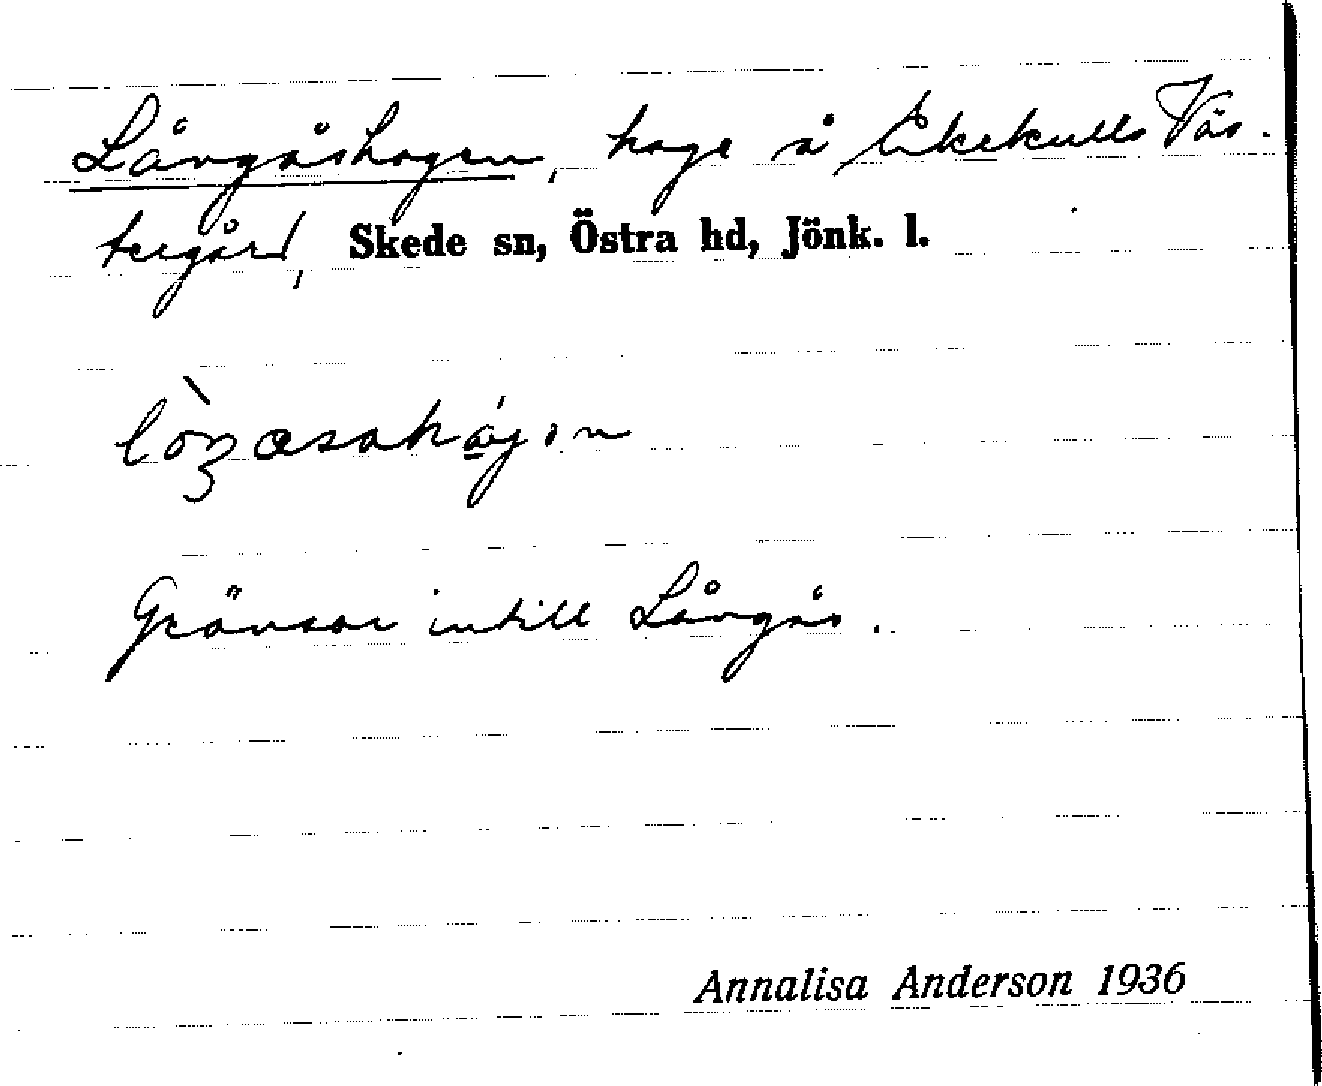 Långåshagen, hage å Ekekulls Väs-
tergård, Skede sn, Östra hd, Jönk. l.
Gränsar intill Långås.
Annalisa Anderson 1936